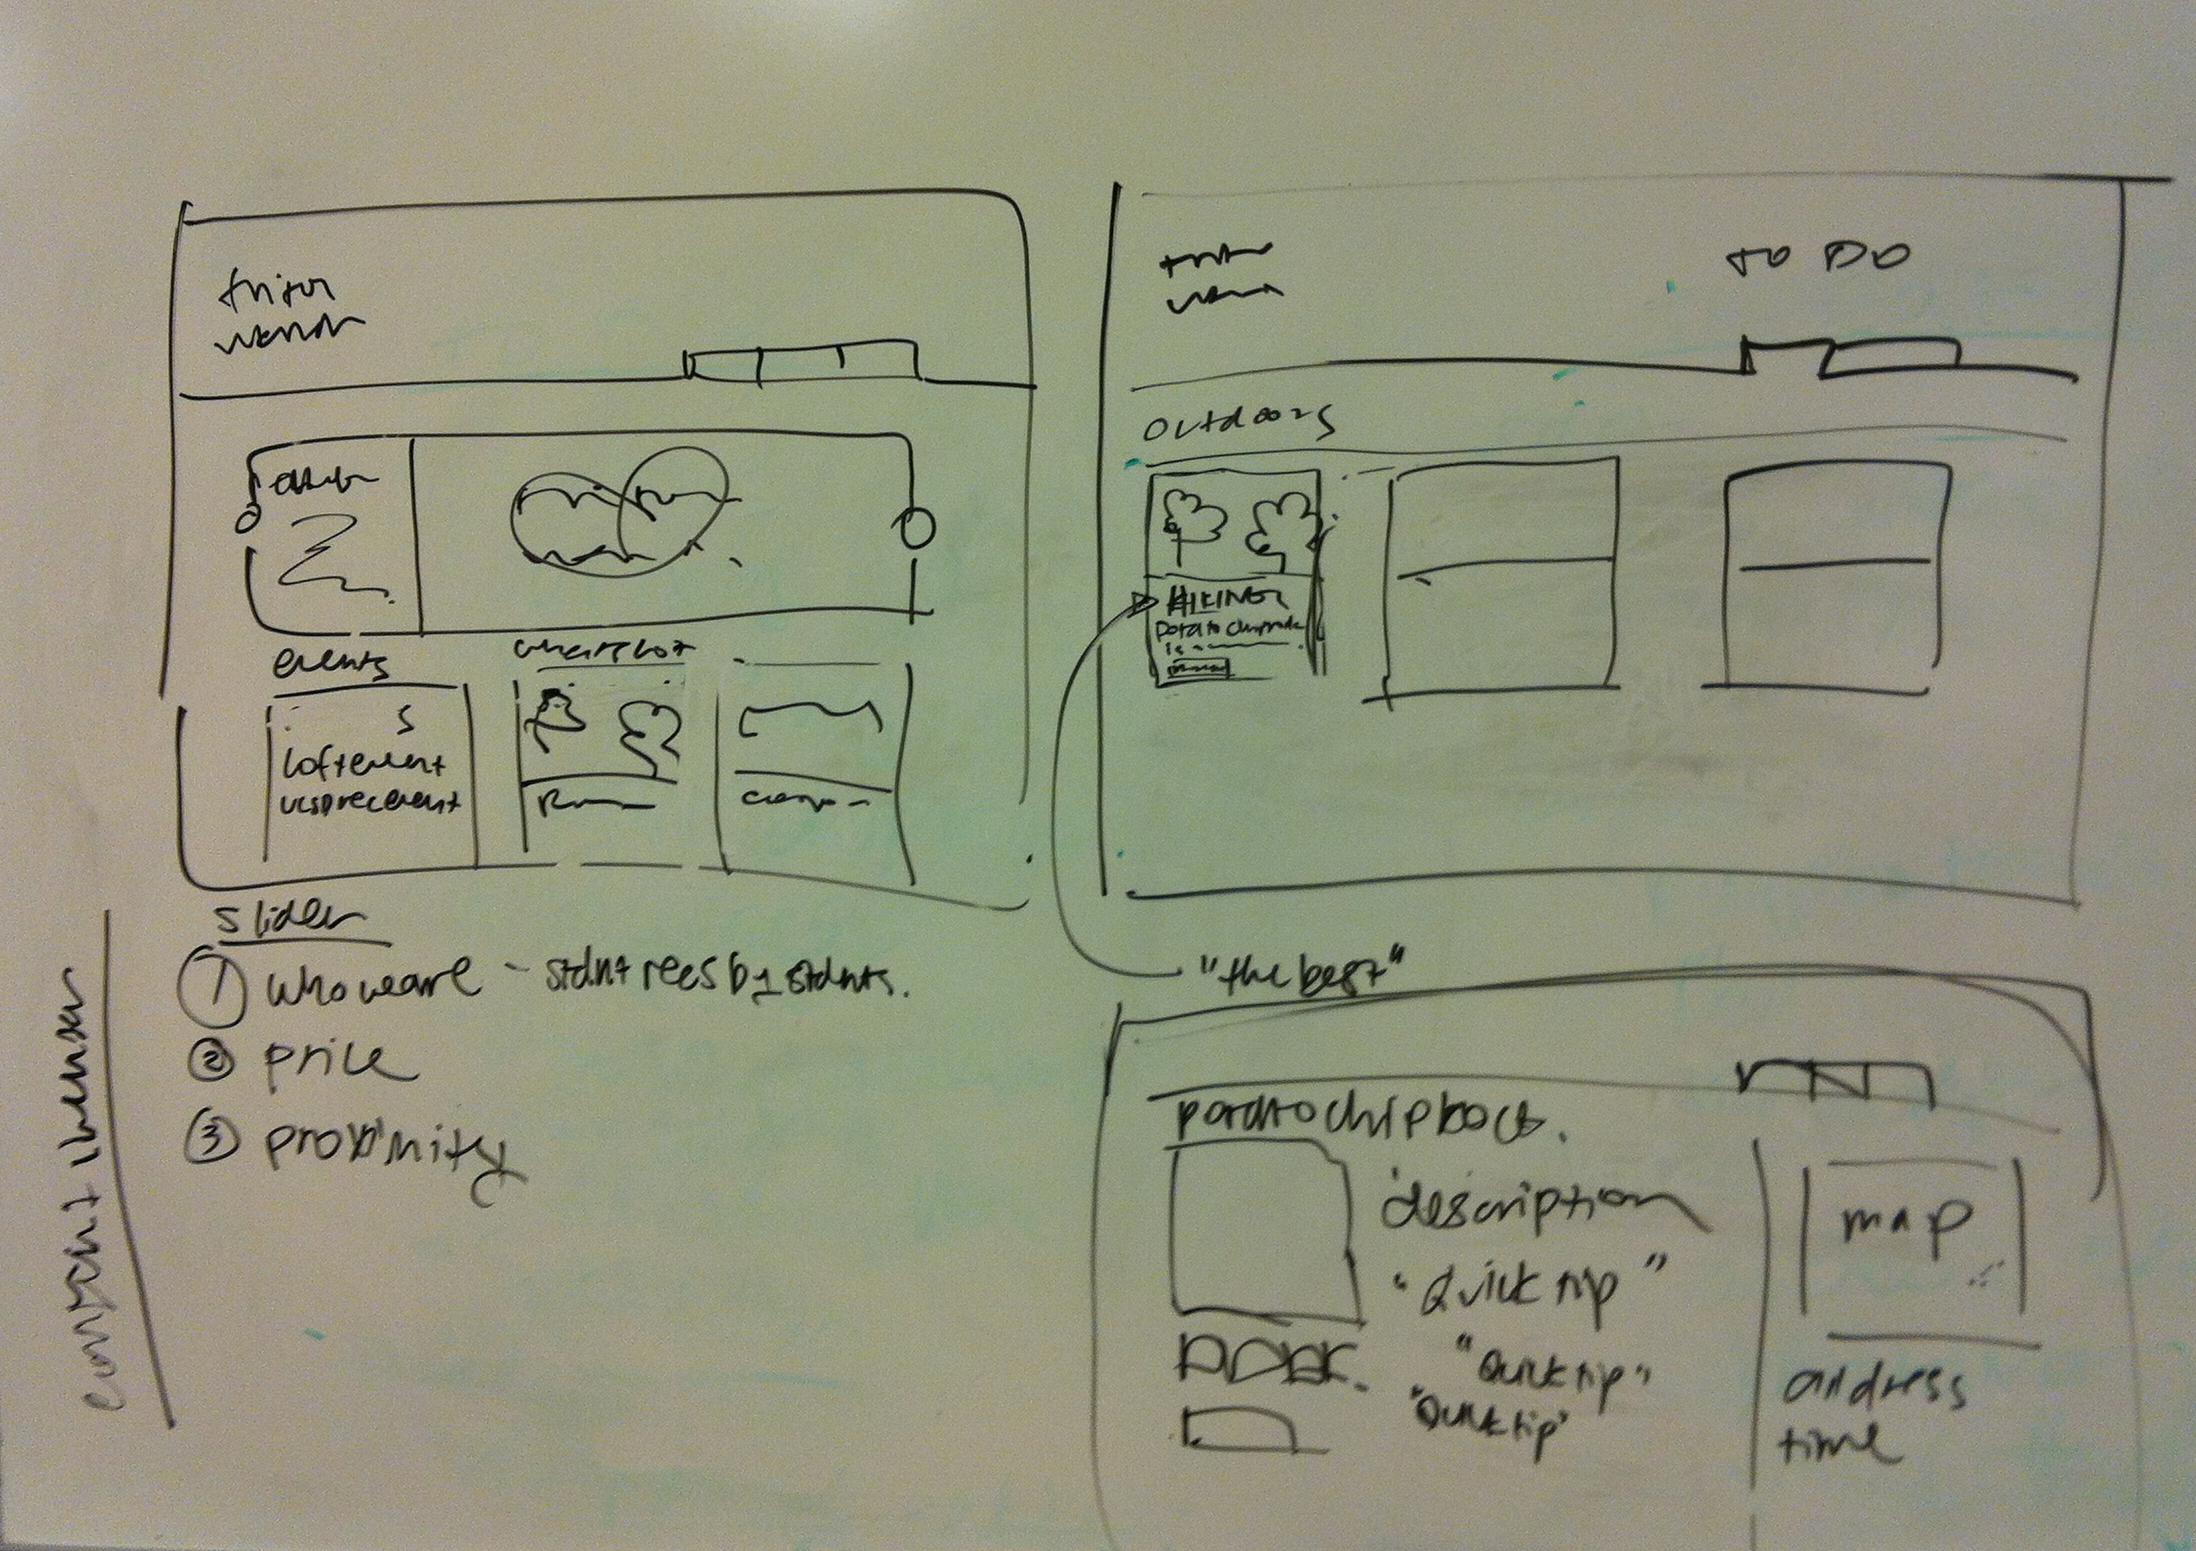 triton
events
what's hot
loft event
ucsd rec event
slider
① who we are - stdnt recs by stdnts.
② price
③ proximity
TO DO
outdoors
HIKING
potato chip rock
is
"the best"
potato chip rock.
description
"Quick tip"
"Quick tip"
"Quick tip"
map
address
time
content